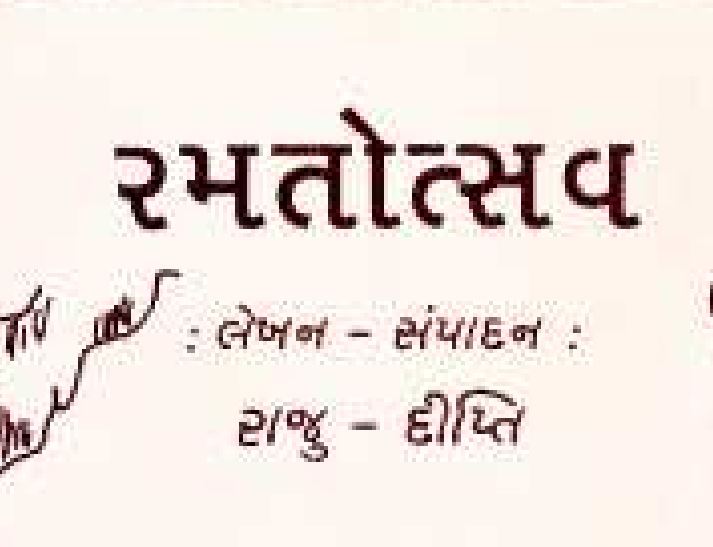 રમતોત્સવ
: લેખન - સંપાદન :
રાજુ - દીપ્તિ